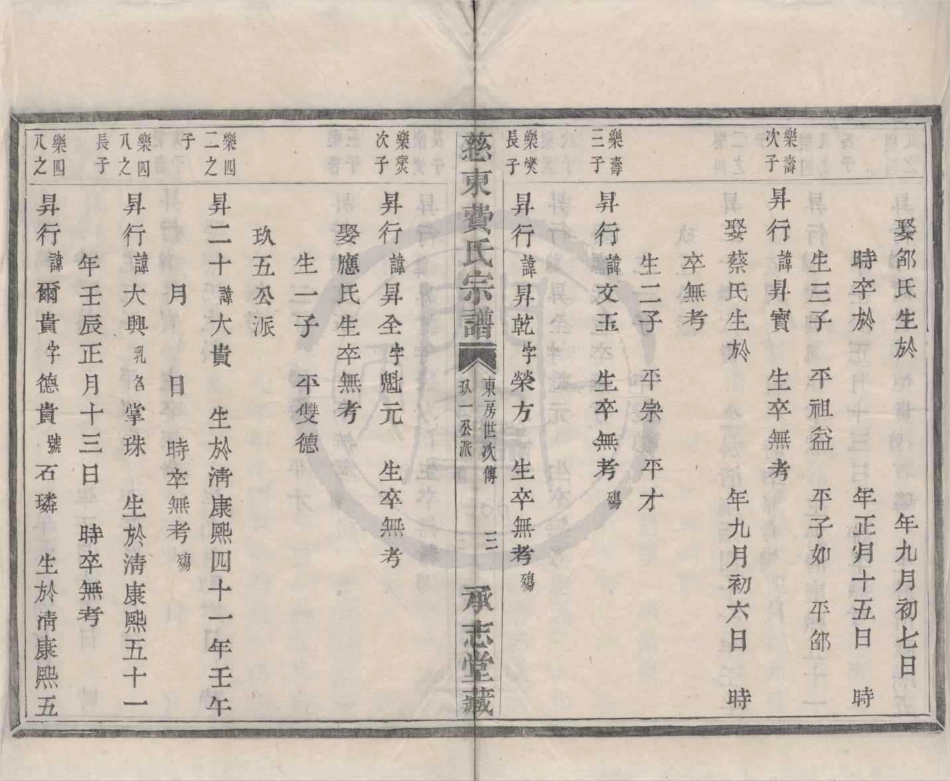 娶邵氏生於　年九月初七日
時卒於　年正月十五日　時
生三子　平祖益　平子如　平邵
樂壽次子
昇行諱昇寶　生卒無考
娶蔡氏生於　年九月初六日　時
卒無考
生二子　平宗　平才
樂壽三子
昇行諱文玉　生卒無考殤
樂爕長子
昇行諱昇乾字榮方　生卒無考殤
慈東費氏宗譜　東房世次傳　玖一公派　三　承志堂藏
樂爕次子
昇行諱昇全字魁元　生卒無考
娶應氏生卒無考
生一子　平雙德
玖五公派
樂四二之子
昇二十諱大貴　生於淸康熙四十一年壬午
月　日　時卒無考殤
樂四八之長子
昇行諱大興乳名掌珠　生於淸康熙五十一
年壬辰正月十三日　時卒無考
樂四八之
昇行諱爾貴字德貴號石璘　生於淸康熙五